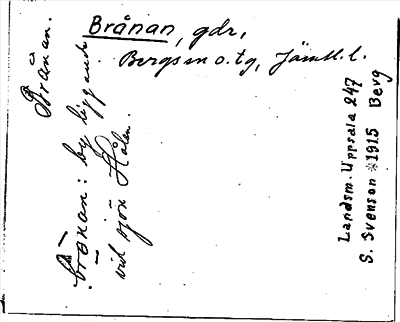 Brånan, gdr,
Bergs sn o. tg, Jämtl. l.
Brånan.
brånan: by liggande
vid sjön Hålen.
Landsm. Uppsala 247
S. Svenson *1915 Berg